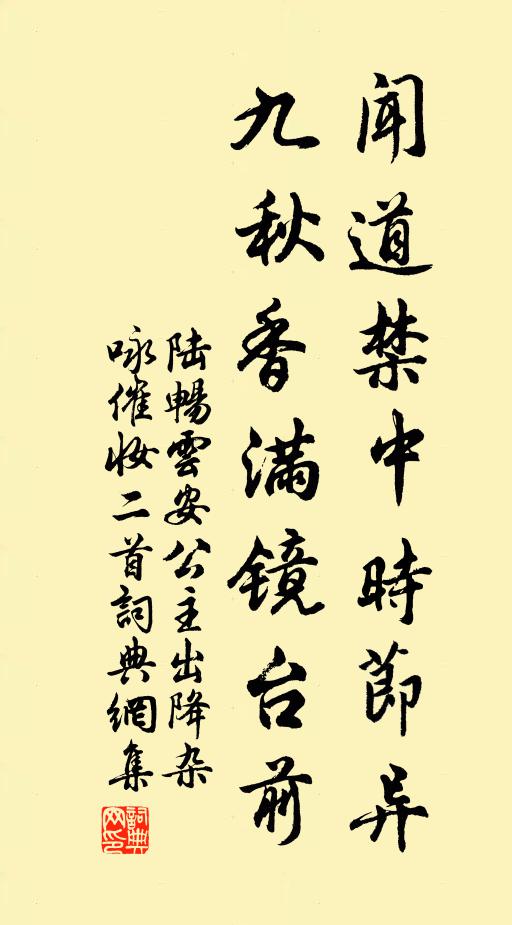 闻道禁中時節异
九秋香满镜台前
陆暢雲安公主出降杂
咏催妆二首詞典網集
詞典網印